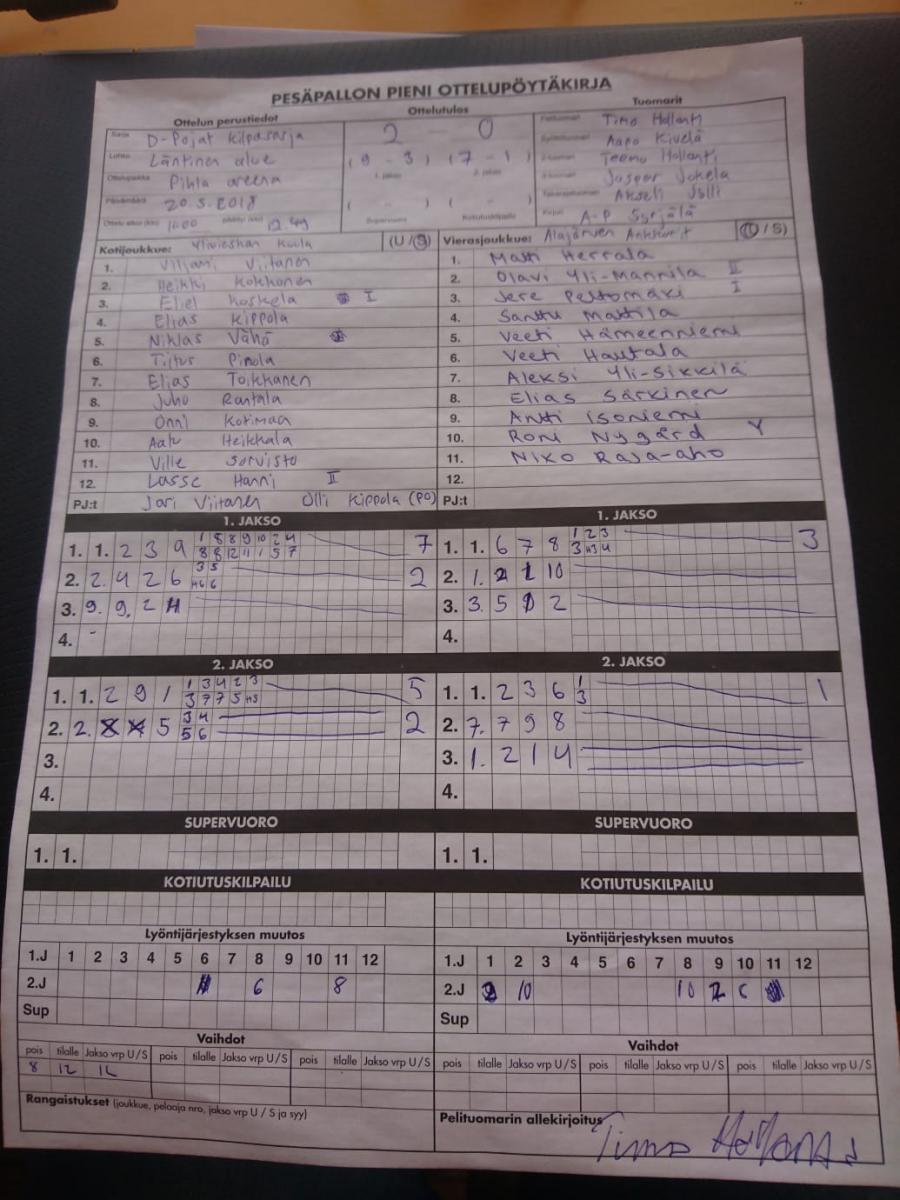 PESÄPALLON PIENI OTTELUPÖYTÄKIRJA
Ottelun perustiedot
Ottelutulos
Tuomarit
Sarja D-Pojat Kilpasarja
Lohko Läntinen alue
Ottelupaikka Pihla areena
Päivämäärä 20.5.2018
11.00 12.49
2 0
(9 - 3) (7 - 1)
1. jakso 2. jakso
( - ) ( - )
Supervuoro Kotiutuskilpailu
Pelituomari Timo Hollanti
Syöttötuomari Aapo Kivelä
2-tuomari Teemu Hollanti
3-tuomari Jaspar Jokela
Takarajatuomari Akseli
Kirjuri A-P Syrjälä
Kotijoukkue: Ylivieskan Kuula (U / S)
1. Viljami Viitanen
2. Heikki Kokkonen
3. Eliel Koskela I
4. Elias Kippola
5. Niklas Vähä
6. Tiitus Pinola
7. Elias Toikkanen
8. Juho Rantala
9. Onni Kotimaa
10. Aatu Heikkala
11. Ville Sorvisto
12. Lasse Hanni II
PJ:t Jari Viitanen Olli Kippola (PO)
Vierasjoukkue: Alajärven Ankkurit (U / S)
1. Matti Herrala
2. Olavi Yli-Mannila II
3. Jere Peltomäki I
4. Santtu Mattila
5. Veeti Hämeenniemi
6. Veeti Hautala
7. Aleksi Yli-Sikkilä
8. Elias Särkinen
9. Antti Isoniemi
10. Roni Nygård Y
11. Niko Raja-aho
12.
PJ:t
1. JAKSO
1. 1. 2 3 9 7
2. 2. 4 2 6 3 5 2
3. 9. 9. 2
4. -
1. JAKSO
1. 1. 6 7 8 1 2 3 3
2. 1. 10
3. 3. 5 2
4.
2. JAKSO
1. 1. 2 9 1 1 3 4 2 3 5
3 7 7 5
2. 2. 5 3 4 2
5 6
3.
4.
2. JAKSO
1. 1. 2 3 6 1 1
3
2. 7. 7 9 8
3. 1. 2 1 4
4.
SUPERVUORO
1. 1.
SUPERVUORO
1. 1.
KOTIUTUSKILPAILU
KOTIUTUSKILPAILU
Lyöntijärjestyksen muutos
1.J 1 2 3 4 5 6 7 8 9 10 11 12
2.J 6 8
Sup
Lyöntijärjestyksen muutos
1.J 1 2 3 4 5 6 7 8 9 10 11 12
2.J 10 10
Sup
Vaihdot
pois tilalle Jakso vrp U / S pois tilalle Jakso vrp U / S pois tilalle Jakso vrp U / S
8 12
Vaihdot
pois tilalle Jakso vrp U / S pois tilalle Jakso vrp U / S pois tilalle Jakso vrp U / S
Rangaistukset (joukkue, pelaaja nro, jakso vrp U / S ja syy)
Pelituomarin allekirjoitus
Timo Hollanti